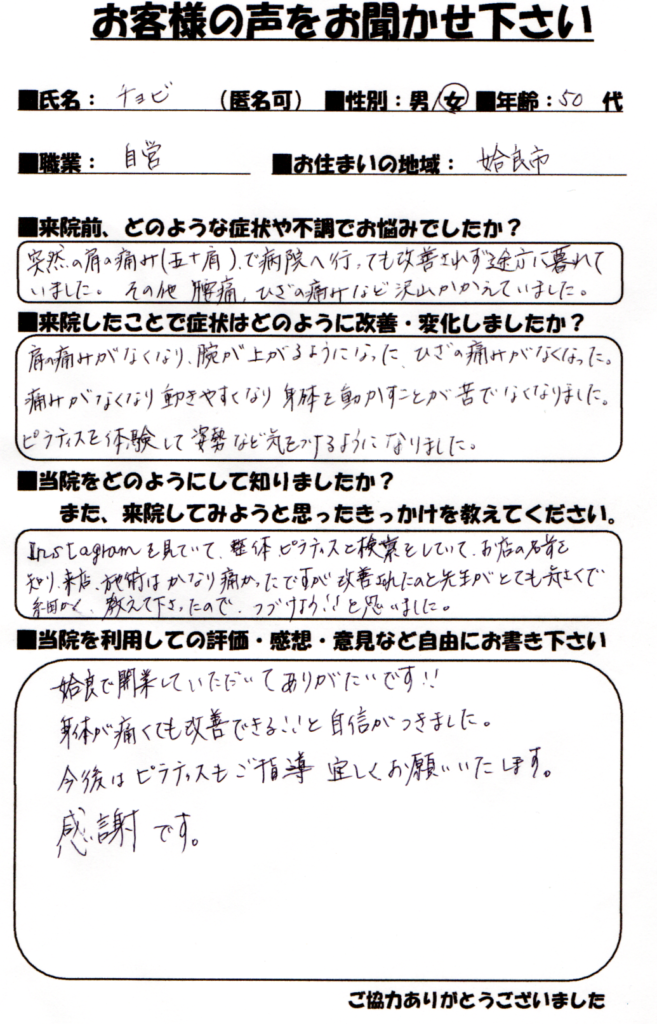 お客様の声をお聞かせ下さい
■氏名： チョビ （匿名可） ■性別：男/女 ■年齢：50 代
■職業： 自営 ■お住まいの地域： 姶良市
■来院前、どのような症状や不調でお悩みでしたか？
突然の肩の痛み(五十肩)で病院へ行っても改善されず途方に暮れて
いました。 その他 腰痛、ひざの痛みなど沢山かかえていました。
■来院したことで症状はどのように改善・変化しましたか？
肩の痛みがなくなり、腕が上がるようになった、ひざの痛みがなくなった。
痛みがなくなり動きやすくなり 身体を動かすことが苦でなくなりました。
ピラティスを体験して 姿勢など気をつけるようになりました。
■当院をどのようにして知りましたか？
また、来院してみようと思ったきっかけを教えてください。
Instagramを見ていて、整体 ピラティスと検索をしていて、お店の名前を
知り、来店、施術はかなり痛かったですが 改善されたのと先生がとても気さくで
細かく、教えて下さったので、つづけよう!!と思いました。
■当院を利用しての評価・感想・意見など自由にお書き下さい
姶良で開業していただいてありがたいです!!
身体が痛くても改善できる!!と自信がつきました。
今後は ピラティスもご指導 宜しくお願いいたします。
感謝です。
ご協力ありがとうございました